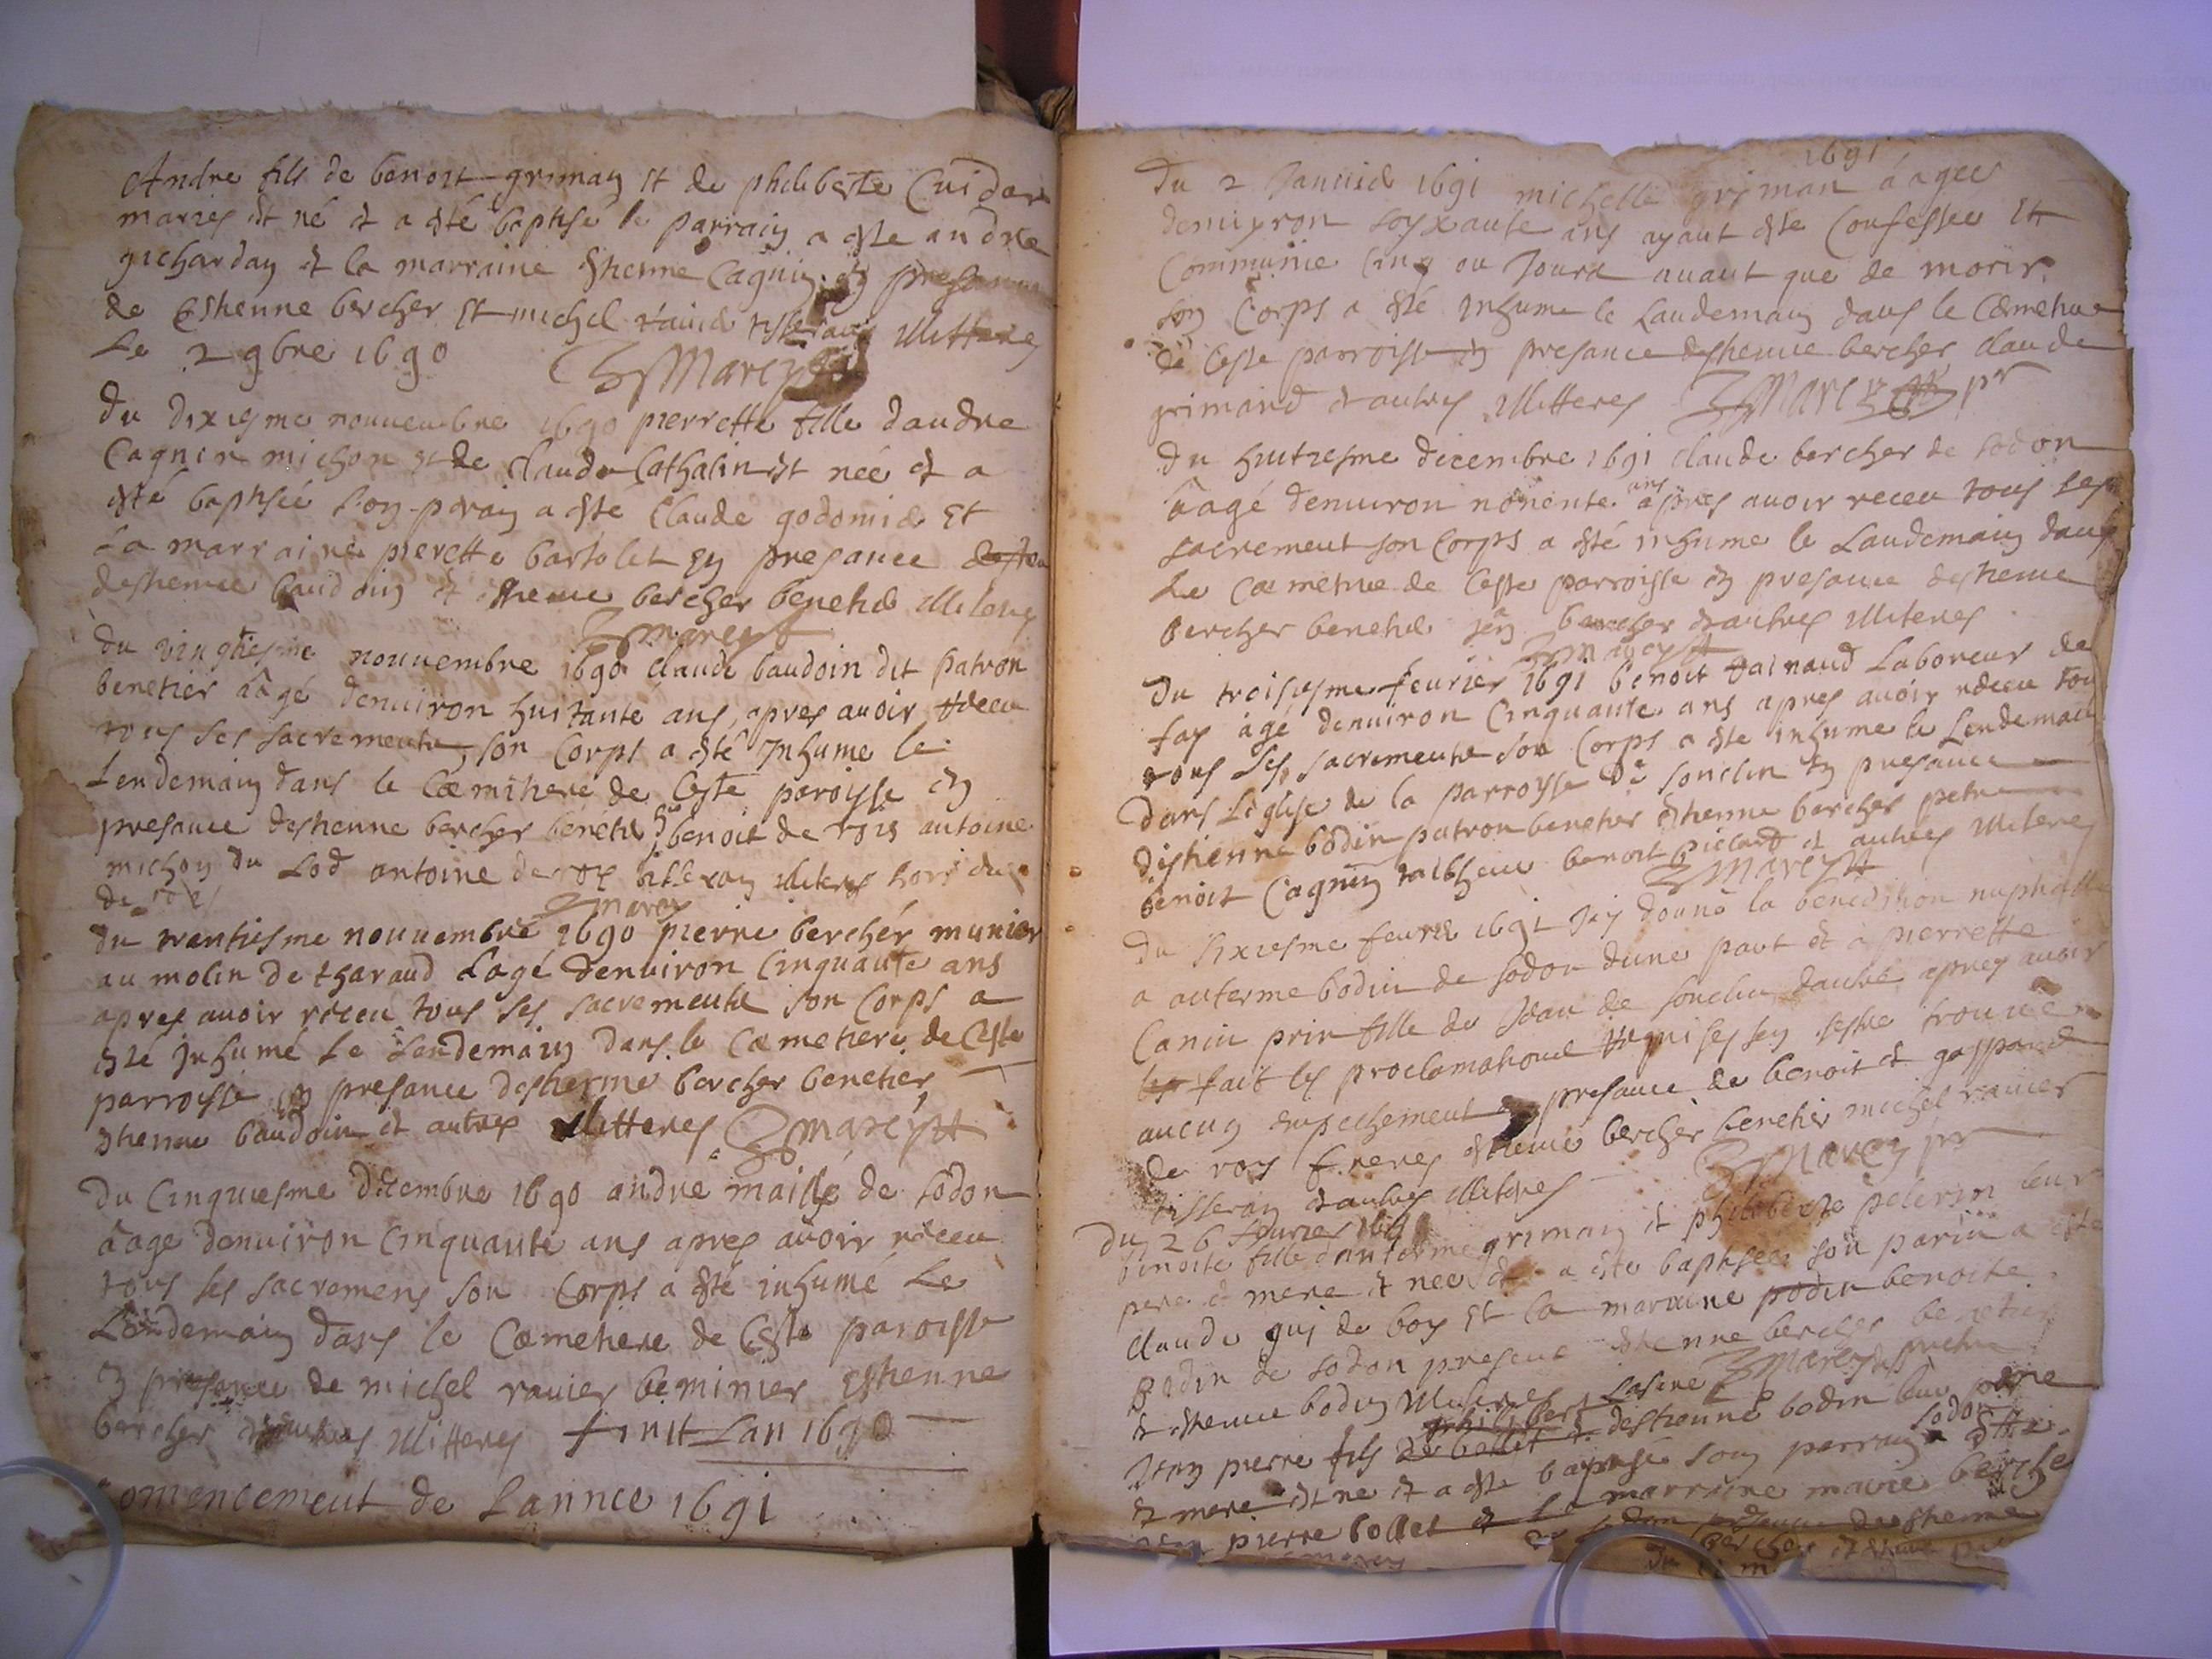 Andre fils de benoit griman et de philiberte Cuider
maries est né et a esté baptisé le parrain a este andre
guichardan et la marraine Ethenne Cagnin en presance
de Esthenne bercher et michel ravie tisseran illitteres
Le 2 9bre 1690 Marey
du dixiesme nouvembre 1690 pierrette fille dandre
Cagnin michon et de claude Cathalin est née et a
esté baptisée son parain a esté Claude godomié et
La marraine pierette bartolet en presance
desthenne baudoin et esthenne bercher benetié illiteres
Marey
du vingtiesme nouvembre 1690 claude baudoin dit patron
benetier ââgé denuiron huitante ans, apres auoir receu
tous ses sacrements, son Corps a esté Inhume le
Lendemain dans le Cæmitiere de Ceste paroisse en
presance desthenne bercher benetié benoit de rois antoine
michon du Lod antoine de roy tisseran illiteres hors du
Marey
du trantiesme nouvembre 1690 pierre berchér munier
au molin de tharaud Lagé denuiron Cinquante ans
apres auoir receu tous ses sacrements son Corps a
esté Inhumé Le Lendemain dans le Cæmetiere de Ceste
parroisse en presance desthenne bercher benetier
esthenne baudoin et autres illitteres Marey ptr
du Cinquiesme decembre 1690 andre maisse de sodon
âage denuiron Cinquante ans apres auoir receu
tous ses sacremens son Corps a esté inhumé Le
Lendemain dans le Cæmetiere de Ceste paroisse
en presance de michel ravier beminier Esthenne
bercher et autres illitteres finit Lan 1690
Comencement de Lannee 1691
1691
du 2 Januié 1691 michelle griman âagee
denuyron soyxante ans ayant este Confessee et
Communiée Cinq ou Jours auant que de morir
son Corps a esté Inhume le Landemain dans le Cæmetiere
de Ceste parroisse en presance desthenne bercher claude
grimand et autres illitteres Marey ptr
du huitiesme decembre 1691 claude bercher de sodon
âagé denuiron nonente ans apres auoir receu tous ses
sacrement son Corps a esté inhume le Landemain dans
Le Cæmetiere de Ceste parroisse en presance desthenne
bercher benetié Jean bercher et autres illiteres
Marey ptr
du troisiesme feurier 1691 benoit rainaud Laboreur de
fay âgé denuiron Cinquante ans apres auoir receu tou
tous ses sacrements son Corps a este inhume le Lendemain
dans Léglise de la parroysse de sonclin en presance
desthenne bodin patron benetier esthenne bercher petre
benoit Cagnin benoit picard et autres illiteres
Marey ptr
du sixiesme feurié 1691 Jay donné la benediction nuptialle
a anterme bodin de sodon dune part et a pierrette
Canin prin fille de Jean de sonclin dautre apres auoir
fait les proclamations requises sen sestre trouué
aucun empechement en presance de benoit et gaspard
de roys freres esthenne bercher benetié michel ravier
tisseran et autres illiteres Marey ptr
du 26 feurier 1691
benoite fille danterme griman et philiberte pelerin leur
pere et mere est nee et a este baptisee son parin a este
claude gui de boy et la marraine podin benoite
Bodin de sodon presens esthenne bercher benetié
et esthenne bodin illiteres Marey pretre
Jean pierre fils de bollet philibert Lasare desthenne bodin leur pere
et mere est ne et a este baptisé son parrain sodon
Jean pierre bollet et la marraine marie berche
de sodon presance desthenne
bercher